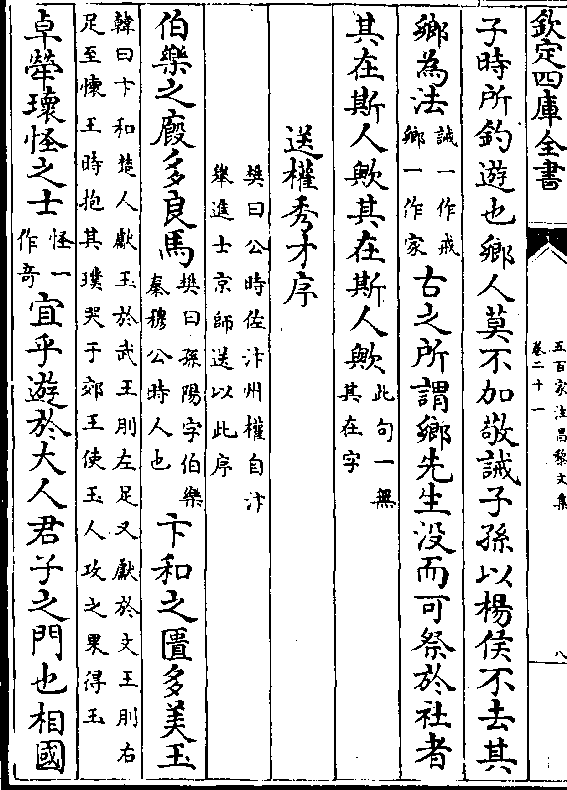 欽定四庫全書
五百家注昌黎文集
卷二十一
八
子時所釣遊也鄉人莫不加敬誡子孫以楊侯不去其
鄉為法誡一作戒
鄉一作家古之所謂鄉先生没而可祭於社者
其在斯人歟其在斯人歟此句一無
其在字
送權秀才序
樊曰公時佐汴州權自汴
舉進士京師送以此序
伯樂之廄多良馬樊曰孫陽字伯樂
秦穆公時人也卞和之匵多美玉
韓曰卞和楚人獻玉於武王刖左足又獻於文王刖右
足至懐王時抱其璞哭于郊王使玉人攻之果得玉
卓犖瓌怪之士怪一
作奇宜乎遊於大人君子之門也相國